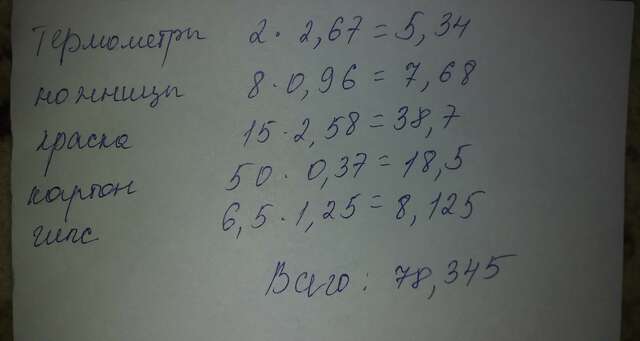 Термометры 2 · 2,67 = 5,34
ножницы 8 · 0,96 = 7,68
краска 15 · 2,58 = 38,7
картон 50 · 0,37 = 18,5
гипс 6,5 · 1,25 = 8,125
Всего : 78,345